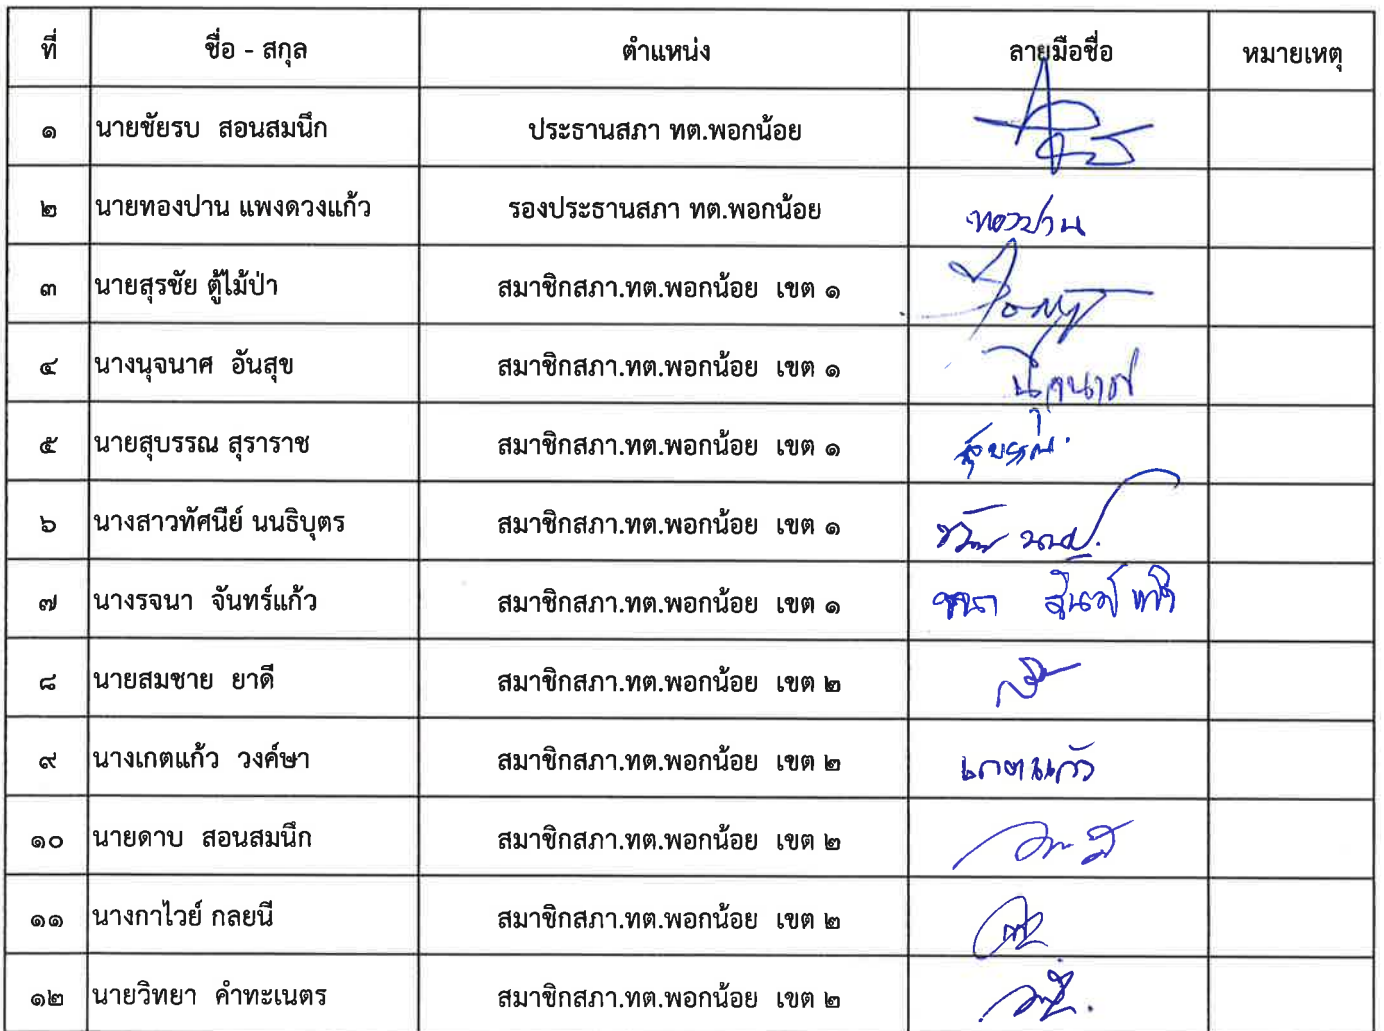 ที่ ชื่อ - สกุล ตำแหน่ง ลายมือชื่อ หมายเหตุ
๑ นายชัยรบ สอนสมนึก ประธานสภา ทต.พอกน้อย
๒ นายทองปาน แพงดวงแก้ว รองประธานสภา ทต.พอกน้อย ทองปาน
๓ นายสุรชัย ตู้ไม้ป่า สมาชิกสภา.ทต.พอกน้อย เขต ๑
๔ นางนุจนาศ อันสุข สมาชิกสภา.ทต.พอกน้อย เขต ๑ นุจนาศ
๕ นายสุบรรณ สุราราช สมาชิกสภา.ทต.พอกน้อย เขต ๑ สุบรรณ
๖ นางสาวทัศนีย์ นนธิบุตร สมาชิกสภา.ทต.พอกน้อย เขต ๑
๗ นางรจนา จันทร์แก้ว สมาชิกสภา.ทต.พอกน้อย เขต ๑
๘ นายสมชาย ยาดี สมาชิกสภา.ทต.พอกน้อย เขต ๒
๙ นางเกตแก้ว วงค์ษา สมาชิกสภา.ทต.พอกน้อย เขต ๒ เกตแก้ว
๑๐ นายดาบ สอนสมนึก สมาชิกสภา.ทต.พอกน้อย เขต ๒
๑๑ นางกาไวย์ กลยนี สมาชิกสภา.ทต.พอกน้อย เขต ๒
๑๒ นายวิทยา คำทะเนตร สมาชิกสภา.ทต.พอกน้อย เขต ๒